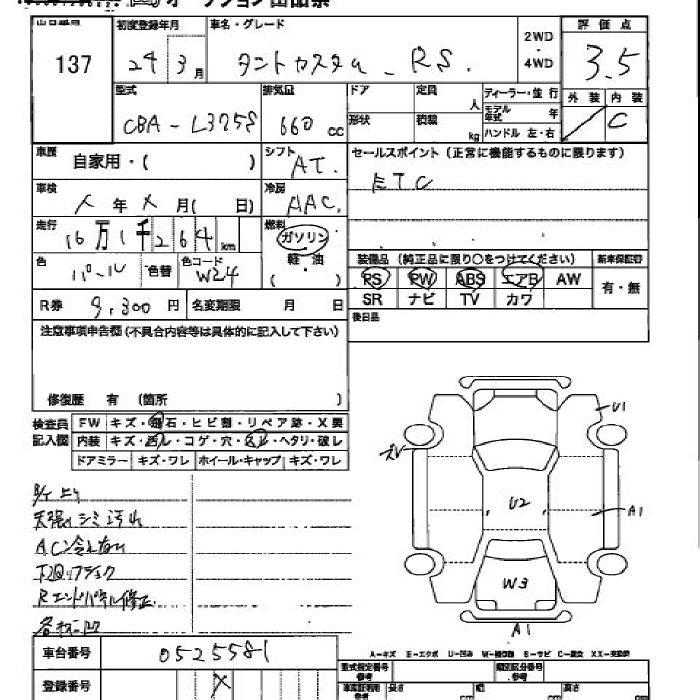 137
初度登録年月 車名・グレード
24 3月 タントカスタム RS.
2WD
・
4WD
評価点
3.5
外装 内装
C
型式 排気量 ドア 定員 人 ディーラー・並行
CBA-L375S 660 cc
形状 積載 kg モデル年式 年
ハンドル 左・右
車歴 自家用・( )
シフト AT.
セールスポイント(正常に機能するものに限ります)
ETC
車検 年 月( 日)
冷房 AAC.
走行 16万1千264km
燃料 ガソリン
軽・油
( )
色 パール 色替 色コード W24
装備品(純正品に限り○をつけてください) 新車保証書
PS PW ABS エアB AW 有・無
SR ナビ TV カワ
R券 9,300円 名変期限 月 日
後日品
注意事項申告欄(不具合内容等は具体的に記入して下さい)
修復歴 有 (箇所 )
検査員
記入欄
FW キズ・飛石・ヒビ割・リペア跡・X要
内装 キズ・ ・コゲ・穴・ ・ヘタリ・破レ
ドアミラー キズ・ワレ ホイール・キャップ キズ・ワレ
天張りシミ汚れ
ACン冷えない
Rエンドパネル修正
U1
U2
A1
W3
A1
車台番号 0525581
登録番号 X
型式指定番号 参考
類別区分番号 参考
長さ cm 幅 cm 高さ cm